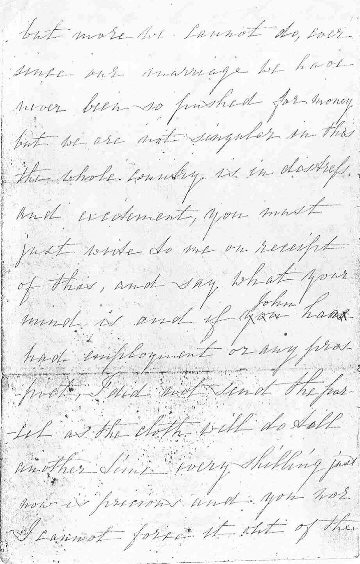 but more we cannot do, ever
since our marriage we have
never been so pushed for money
but we are not singular in this
the whole country is in distress.
and excitement, you must
just write to me on receipt
of this, and say what your
mind is and if you John has
had employment or any pros
pect, I did not send the par
-cel as the cloth will do till
another time every shilling just
now is precious and you nor
I cannot force it out of the